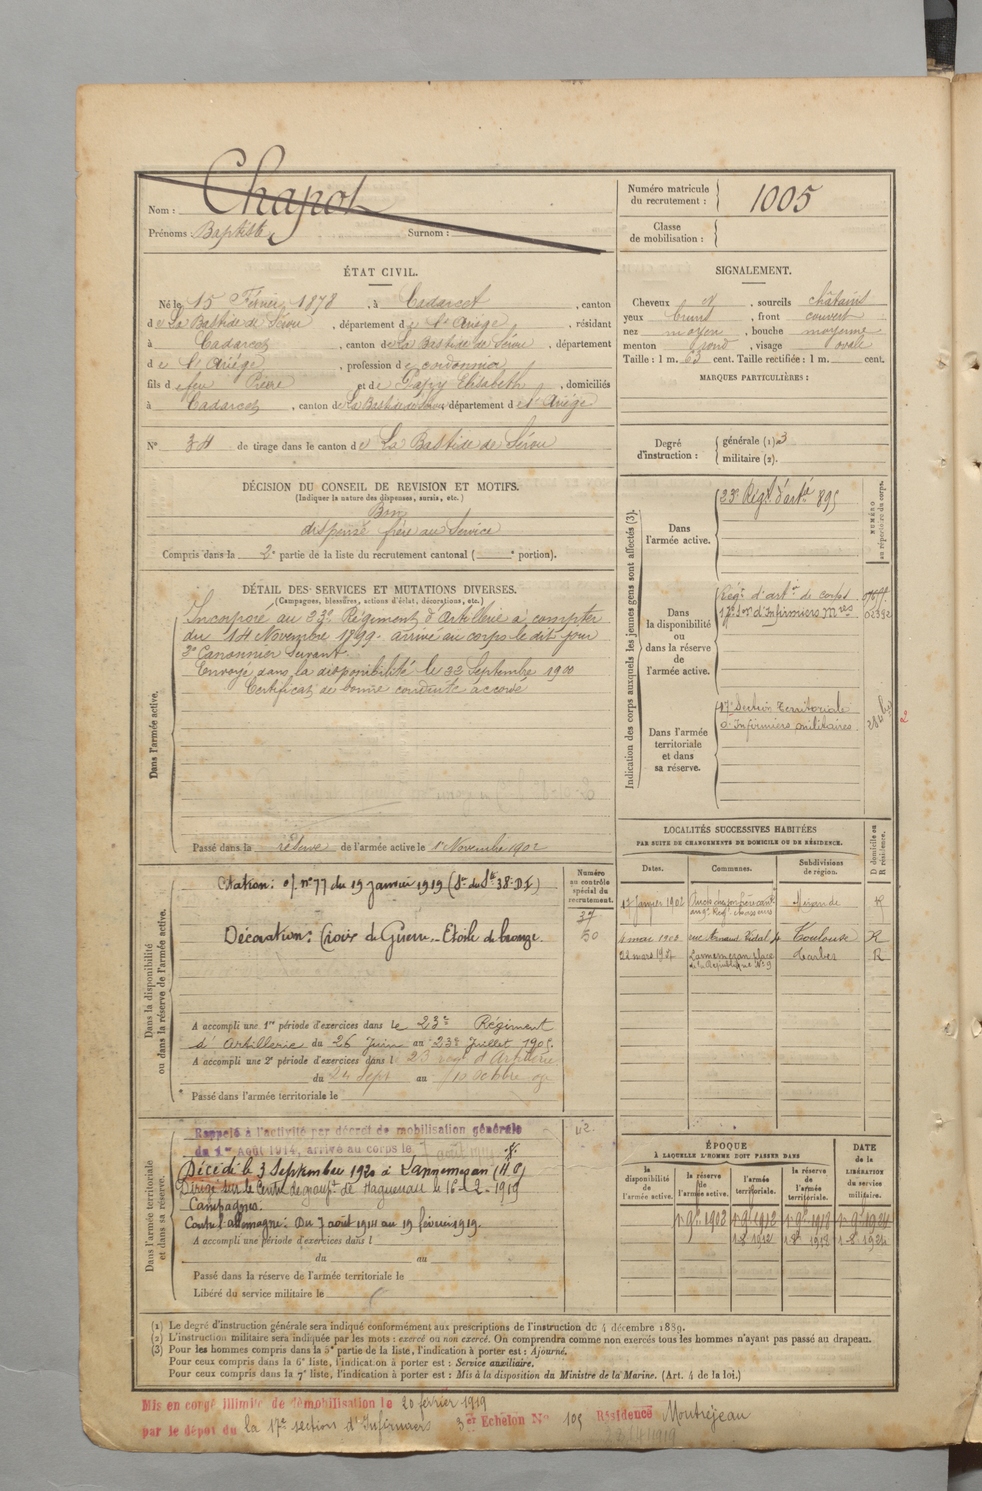 Nom : Chapot
Prénoms : Baptiste Surnom :
Numéro matricule du recrutement : 1005
Classe de mobilisation :
ÉTAT CIVIL.
Né le 15 Février 1878, à Cadarcet, canton
de La Bastide de Sérou, département de l'Ariège, résidant
à Cadarcet, canton de La Bastide de Sérou, département
de l'Ariège, profession de cordonnier
fils de feu Pierre et de Elisabeth, domiciliés
à Cadarcet, canton de La Bastide de Sérou, département de l'Ariège
N° 34 de tirage dans le canton de La Bastide de Sérou
SIGNALEMENT.
Cheveux et, sourcils châtains
yeux bruns, front couvert
nez moyen, bouche moyenne
menton rond, visage ovale
Taille : 1 m. 63 cent. Taille rectifiée : 1 m. cent.
MARQUES PARTICULIÈRES :
Degré d'instruction :
générale (1) 3
militaire (2).
DÉCISION DU CONSEIL DE REVISION ET MOTIFS.
(Indiquer la nature des dispenses, sursis, etc.)
Bon
dispensé frère au Service
Compris dans la 2e partie de la liste du recrutement cantonal ( e portion).
DÉTAIL DES SERVICES ET MUTATIONS DIVERSES.
(Campagnes, blessures, actions d'éclat, décorations, etc.)
Dans l'armée active.
Incorporé au 23e Régiment d'Artillerie à compter
du 14 Novembre 1899 arrivé au corps le dit jour
2e Canonnier Servant.
Envoyé dans la disponibilité le 22 Septembre 1900
Certificat de bonne conduite accordé
Passé dans la réserve de l'armée active le 1er Novembre 1902
Indication des corps auxquels les jeunes gens sont affectés (3).
NUMÉRO au répertoire du corps.
Dans l'armée active.
23e Régt d'artie 895
Dans la disponibilité ou dans la réserve de l'armée active.
Régt d'artie de corps
17e Son d'Infirmiers Mres 02392
Dans l'armée territoriale et dans sa réserve.
17e Section Territoriale
d'Infirmiers militaires
2
LOCALITÉS SUCCESSIVES HABITÉES
PAR SUITE DE CHANGEMENTS DE DOMICILE OU DE RÉSIDENCE.
Dates. Communes. Subdivisions de région. D domicile ou R résidence.
17 Janvier 1902 Mirande R
4 mai 1903 rue Arnaud Vidal Toulouse R
22 mars Lannemezan place de la République N° 9 Tarbes R
Dans la disponibilité ou dans la réserve de l'armée active.
Numéro au contrôle spécial du recrutement.
37
50
Citation : o/. n° 77 du 19 janvier 1919 (Sce de Sté 38e D.I.)
Décoration : Croix de Guerre - Etoile de bronze.
A accompli une 1re période d'exercices dans le 23e Régiment
d'Artillerie du 26 Juin au 23 Juillet 1905.
A accompli une 2e période d'exercices dans l 23 rég d'Artillerie
du 24 Sept au 10 Octobre
Passé dans l'armée territoriale le
Dans l'armée territoriale et dans sa réserve.
Rappelé à l'activité par décret de mobilisation générale
du 1er Août 1914, arrivé au corps le 7 août 1914
Décédé le 3 Septembre 1920 à Lannemezan (H P)
Dirigé sur le Centre de groupt de Haguenau le 16-2-1919
Campagnes.
Contre l'allemagne : Du 7 août 1914 au 19 février 1919.
A accompli une période d'exercices dans l
du au
Passé dans la réserve de l'armée territoriale le
Libéré du service militaire le
ÉPOQUE
À LAQUELLE L'HOMME DOIT PASSER DANS
la disponibilité de l'armée active. la réserve de l'armée active. l'armée territoriale. la réserve de l'armée territoriale.
DATE de la LIBÉRATION du service militaire.
1er 9bre 1902 1er 9bre 1912 1er 9bre 1918 1er 9bre 1924
(1) Le degré d'instruction générale sera indiqué conformément aux prescriptions de l'instruction du 4 décembre 1889.
(2) L'instruction militaire sera indiquée par les mots : exercé ou non exercé. On comprendra comme non exercés tous les hommes n'ayant pas passé au drapeau.
(3) Pour les hommes compris dans la 5e partie de la liste, l'indication à porter est : Ajourné.
Pour ceux compris dans la 6e liste, l'indication à porter est : Service auxiliaire.
Pour ceux compris dans la 7e liste, l'indication à porter est : Mis à la disposition du Ministre de la Marine. (Art. 4 de la loi.)
Mis en congé illimité de démobilisation le 20 février 1919
par le dépôt du la 17e section d'Infirmiers 3er Echelon No 105 Résidence Montréjeau